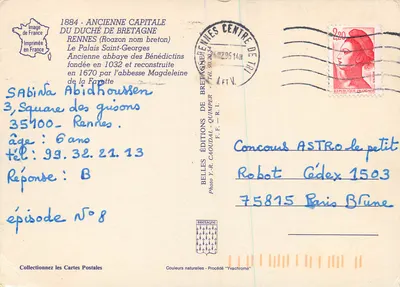 Image
de France
Imprimée
en France
1884 - ANCIENNE CAPITALE
DU DUCHÉ DE BRETAGNE
RENNES (Roazon nom breton)
Le Palais Saint-Georges
Ancienne abbaye des Bénédictins
fondée en 1032 et reconstruite
en 1670 par l'abbesse Magdeleine
de la Fayette
SABINA Abidhoussen
3, Square des grisons
35100 - Rennes.
âge : 6 ans
tél : 99.32.21.13
Réponse : B
épisode N° 8
Collectionnez les Cartes Postales
BELLES ÉDITIONS DE BRETAGNE
Photo Y.-R. CAOUDAL - QUIMPER
F. - R.
BRETAGNE
Couleurs naturelles - Procédé "Frachromo"
RENNES CENTRE DE TRI
2,20
Concours ASTRO le petit
Robot Cédex 1503
75815 Paris Brune